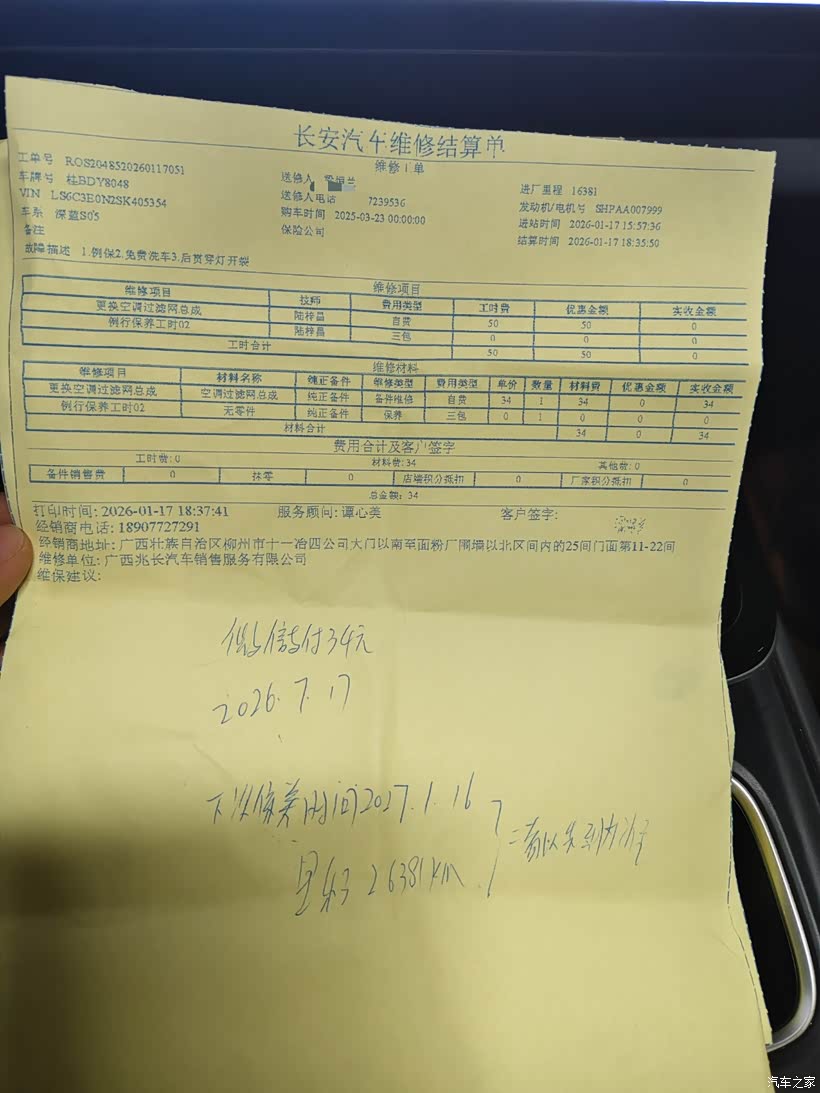 长安汽车维修结算单
维修工单
工单号 ROS2048520260117051
车牌号 桂BDY8048 送修人 进厂里程 16381
VIN LS6C3E0N2SK405354 送修人电话 7239536 发动机/电机号 SHPAA007999
车系 深蓝S05 购车时间 2025-03-23 00:00:00 进站时间 2026-01-17 15:57:36
备注 保险公司 结算时间 2026-01-17 18:35:50
故障描述 1.例保2.免费洗车3.后贯穿灯开裂
维修项目
维修项目 技师 费用类型 工时费 优惠金额 实收金额
更换空调过滤网总成 陆梓昌 自费 50 50 0
例行保养工时02 陆梓昌 三包 0 0 0
工时合计 50 50 0
维修材料
维修项目 材料名称 纯正备件 维修类型 费用类型 单价 数量 材料费 优惠金额 实收金额
更换空调过滤网总成 空调过滤网总成 纯正备件 备件维修 自费 34 1 34 0 34
例行保养工时02 无零件 纯正备件 保养 三包 0 1 0 0 0
材料合计 34 0 34
费用合计及客户签字
工时费: 0 材料费: 34 其他费: 0
备件销售费 0 抹零 0 店端积分抵扣 0 厂家积分抵扣 0
总金额: 34
打印时间: 2026-01-17 18:37:41 服务顾问: 谭心美 客户签字:
经销商电话: 18907727291
经销商地址: 广西壮族自治区柳州市十一冶四公司大门以南至面粉厂围墙以北区间内的25间门面第11-22间
维修单位: 广西兆长汽车销售服务有限公司
维保建议:
微信支付34元
2026.7.17
下次保养时间2027.1.16
里程 26381KM
二者以先到为准
汽车之家